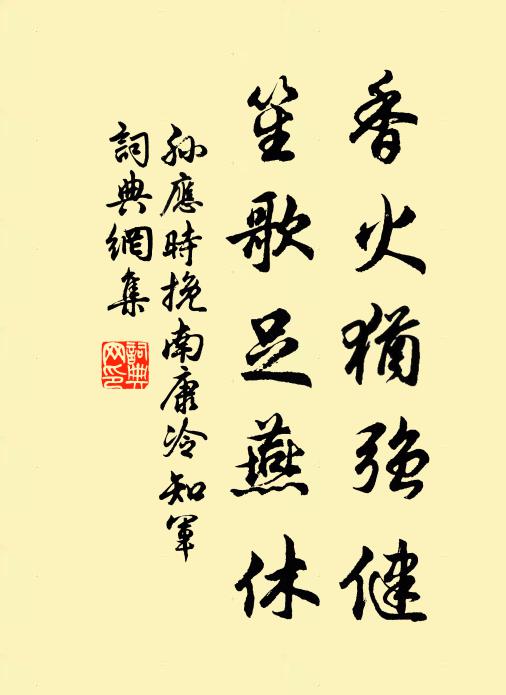 香火猶強健
笙歌足燕休
孫應時挽南康冷知軍
詞典網集
詞典
网印